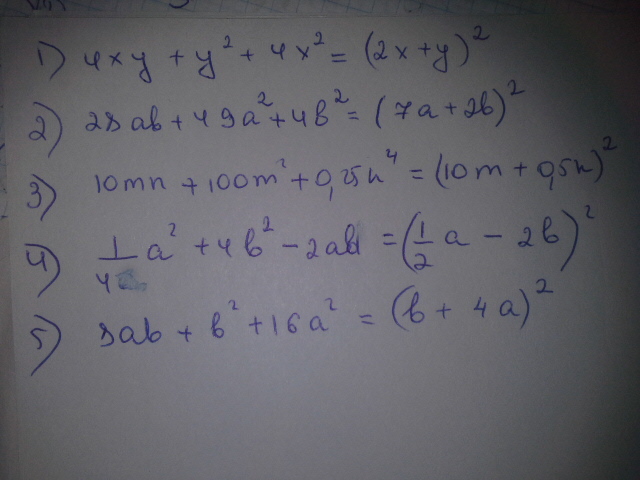 1) 4xy + y² + 4x² = (2x+y)²
2) 28ab + 49a² + 4b² = (7a + 2b)²
3) 10mn + 100m² + 0,25n⁴ = (10m + 0,5n)²
4) 1/4 a² + 4b² - 2ab = (1/2 a - 2b)²
5) 8ab + b² + 16a² = (b + 4a)²